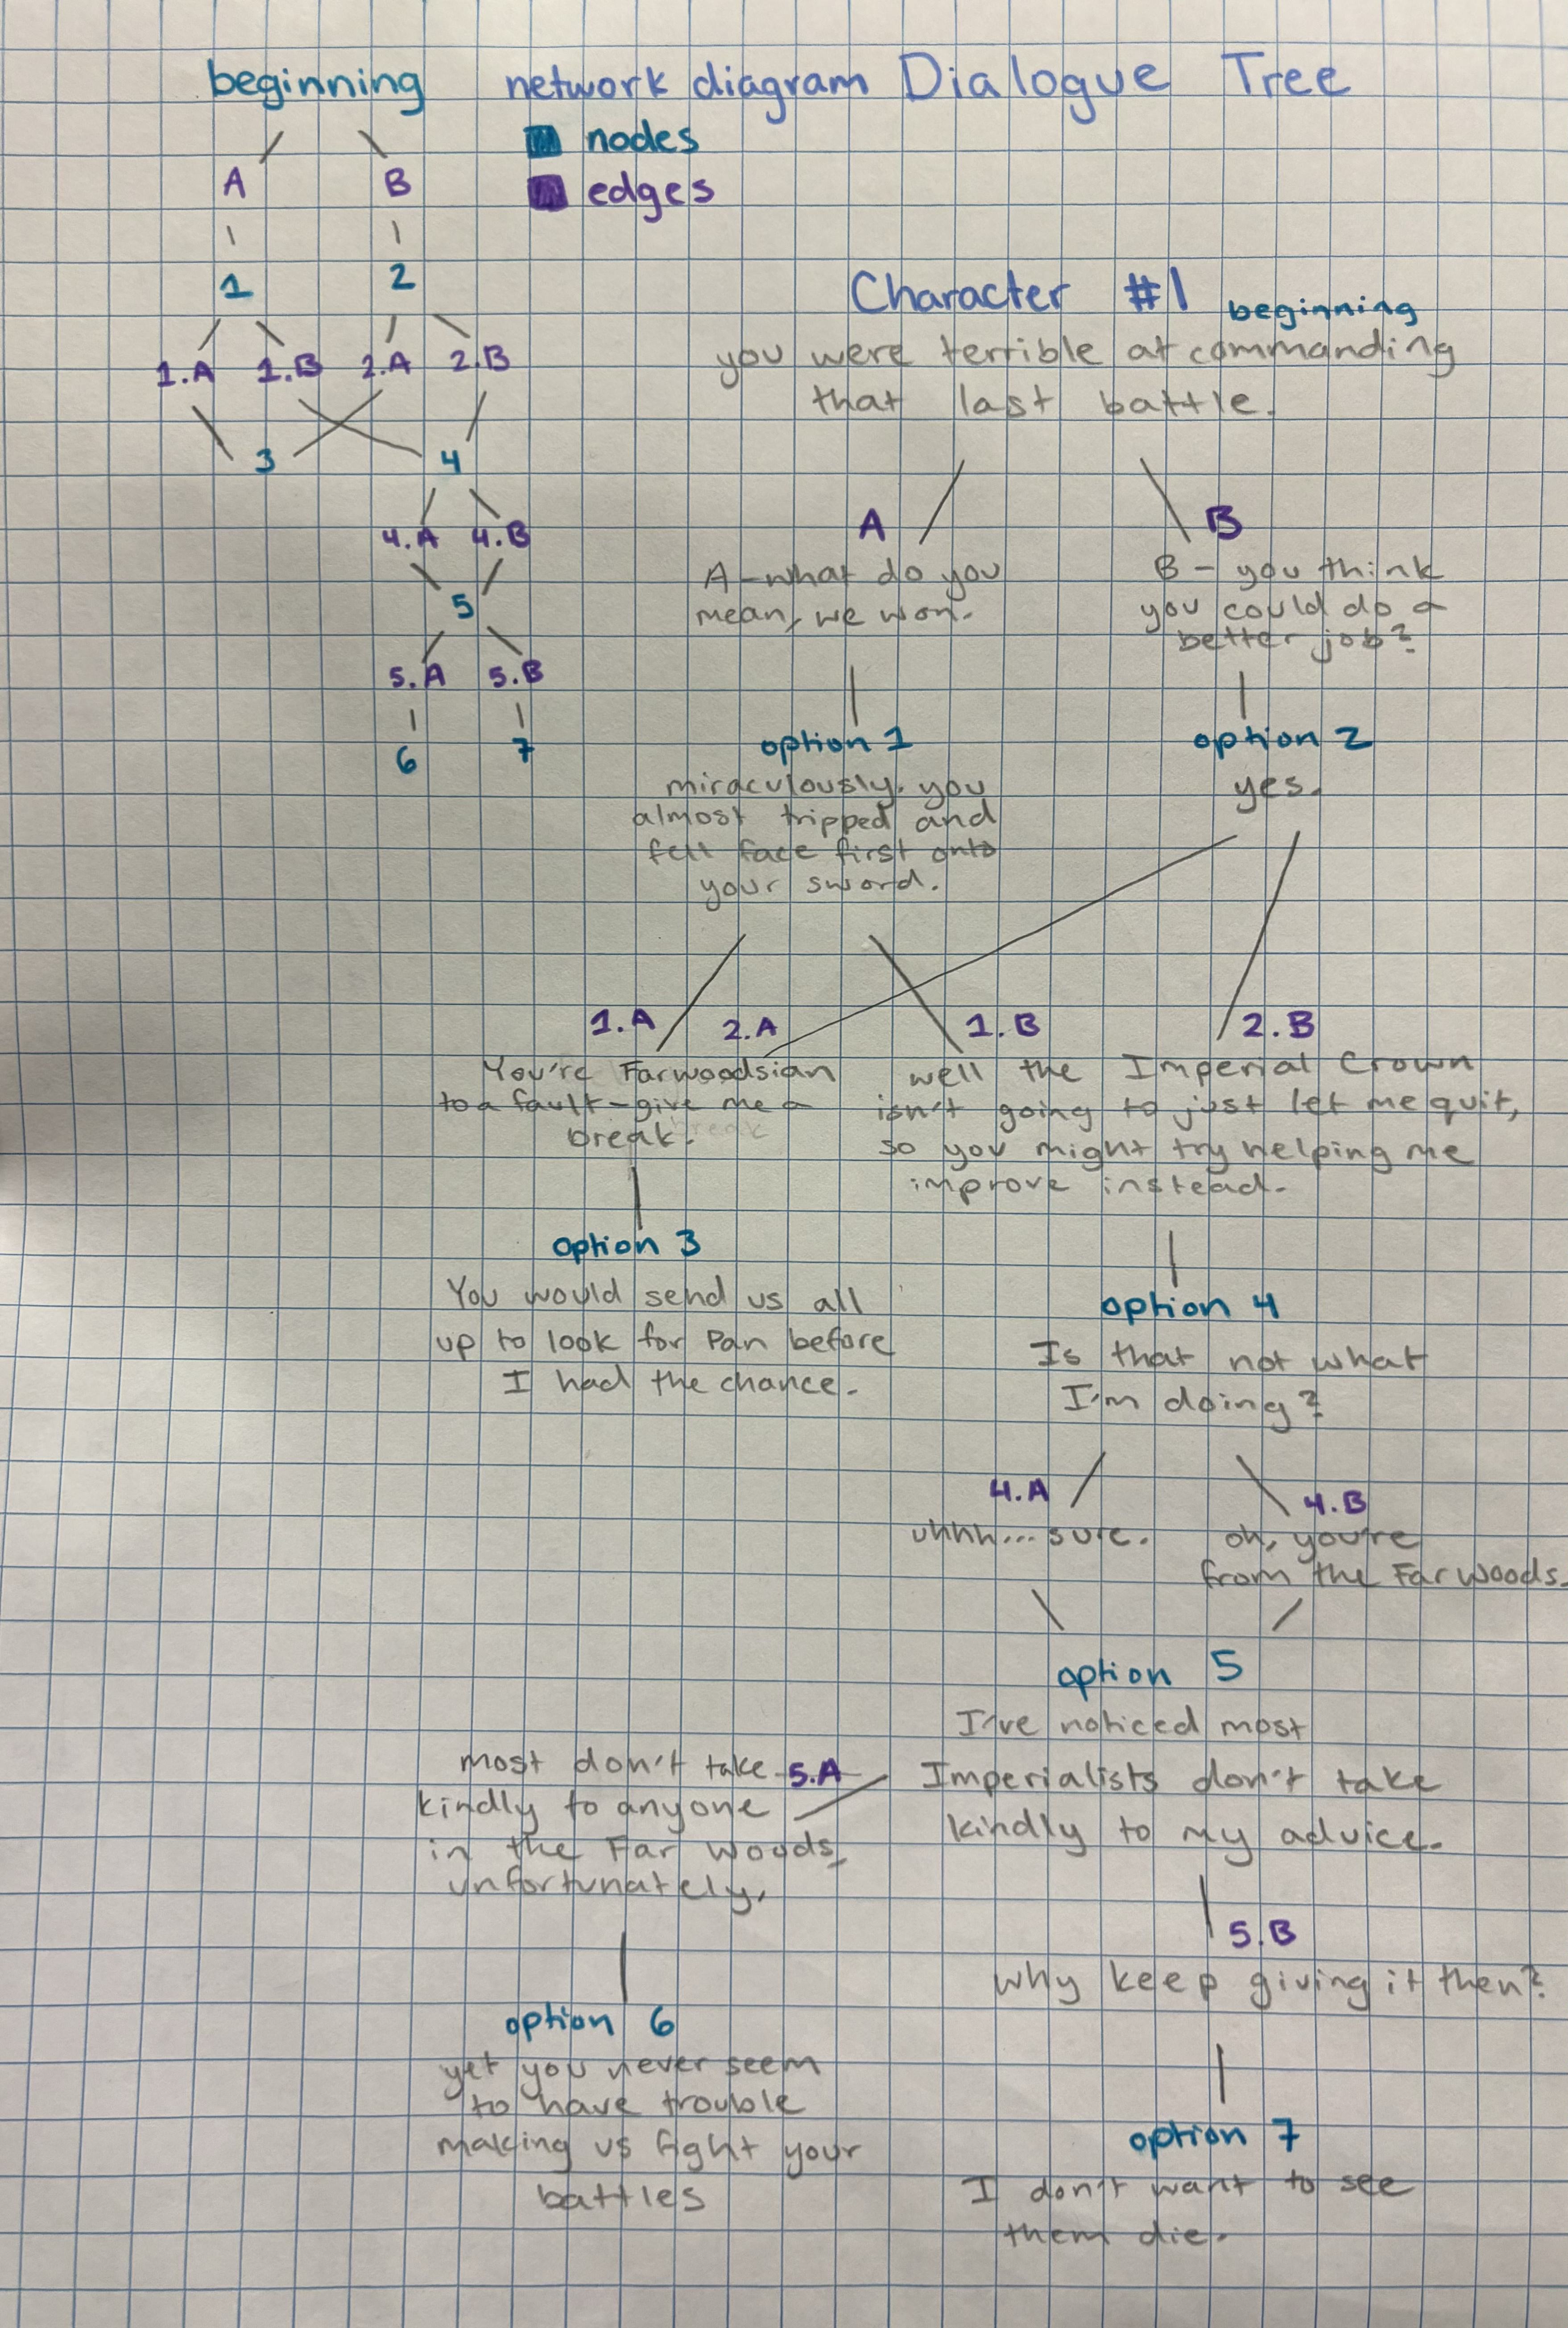 beginning
network diagram Dialogue Tree
nodes
edges
A B
1 2
1.A 1.B 2.A 2.B
3 4
4.A 4.B
5
5.A 5.B
6 7
Character #1
beginning
you were terrible at commanding
that last battle.
A
A - what do you
mean, we won.
B
B - you think
you could do a
better job?
option 1
miraculously. you
almost tripped and
fell face first onto
your sword.
option 2
yes.
1.A 2.A
You're Farwoodsian
to a fault - give me a
break. break
1.B 2.B
well the Imperial Crown
isn't going to just let me quit,
so you might try helping me
improve instead.
option 3
You would send us all
up to look for Pan before
I had the chance.
option 4
Is that not what
I'm doing?
4.A
uhhh... sure.
4.B
oh, you're
from the Far Woods.
option 5
I've noticed most
Imperialists don't take
kindly to my advice.
5.A
most don't take
kindly to anyone
in the Far Woods,
unfortunately.
5.B
why keep giving it then?
option 6
yet you never seem
to have trouble
making us fight your
battles
option 7
I don't want to see
them die.